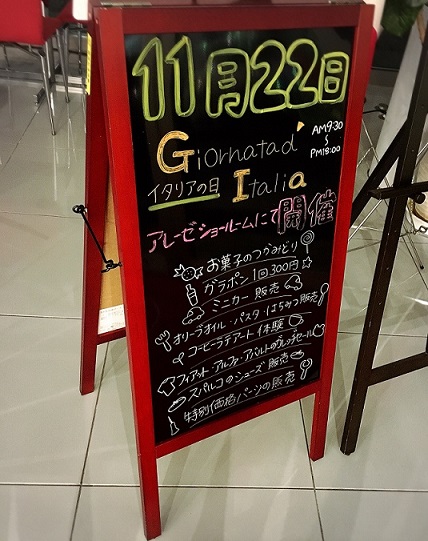 11月22日
Giornata d'
AM9:30
〜
PM18:00
イタリアの日 Italia
アレーゼショールームにて開催
お菓子のつかみどり
ガラポン1回300円
ミニカー販売
オリーブオイル・パスタ・はちみつ販売
コーヒーラテアート体験
フィアット アルファ・アバルトのグッズセール
スパルコのシューズ販売
特別価格パーツの販売